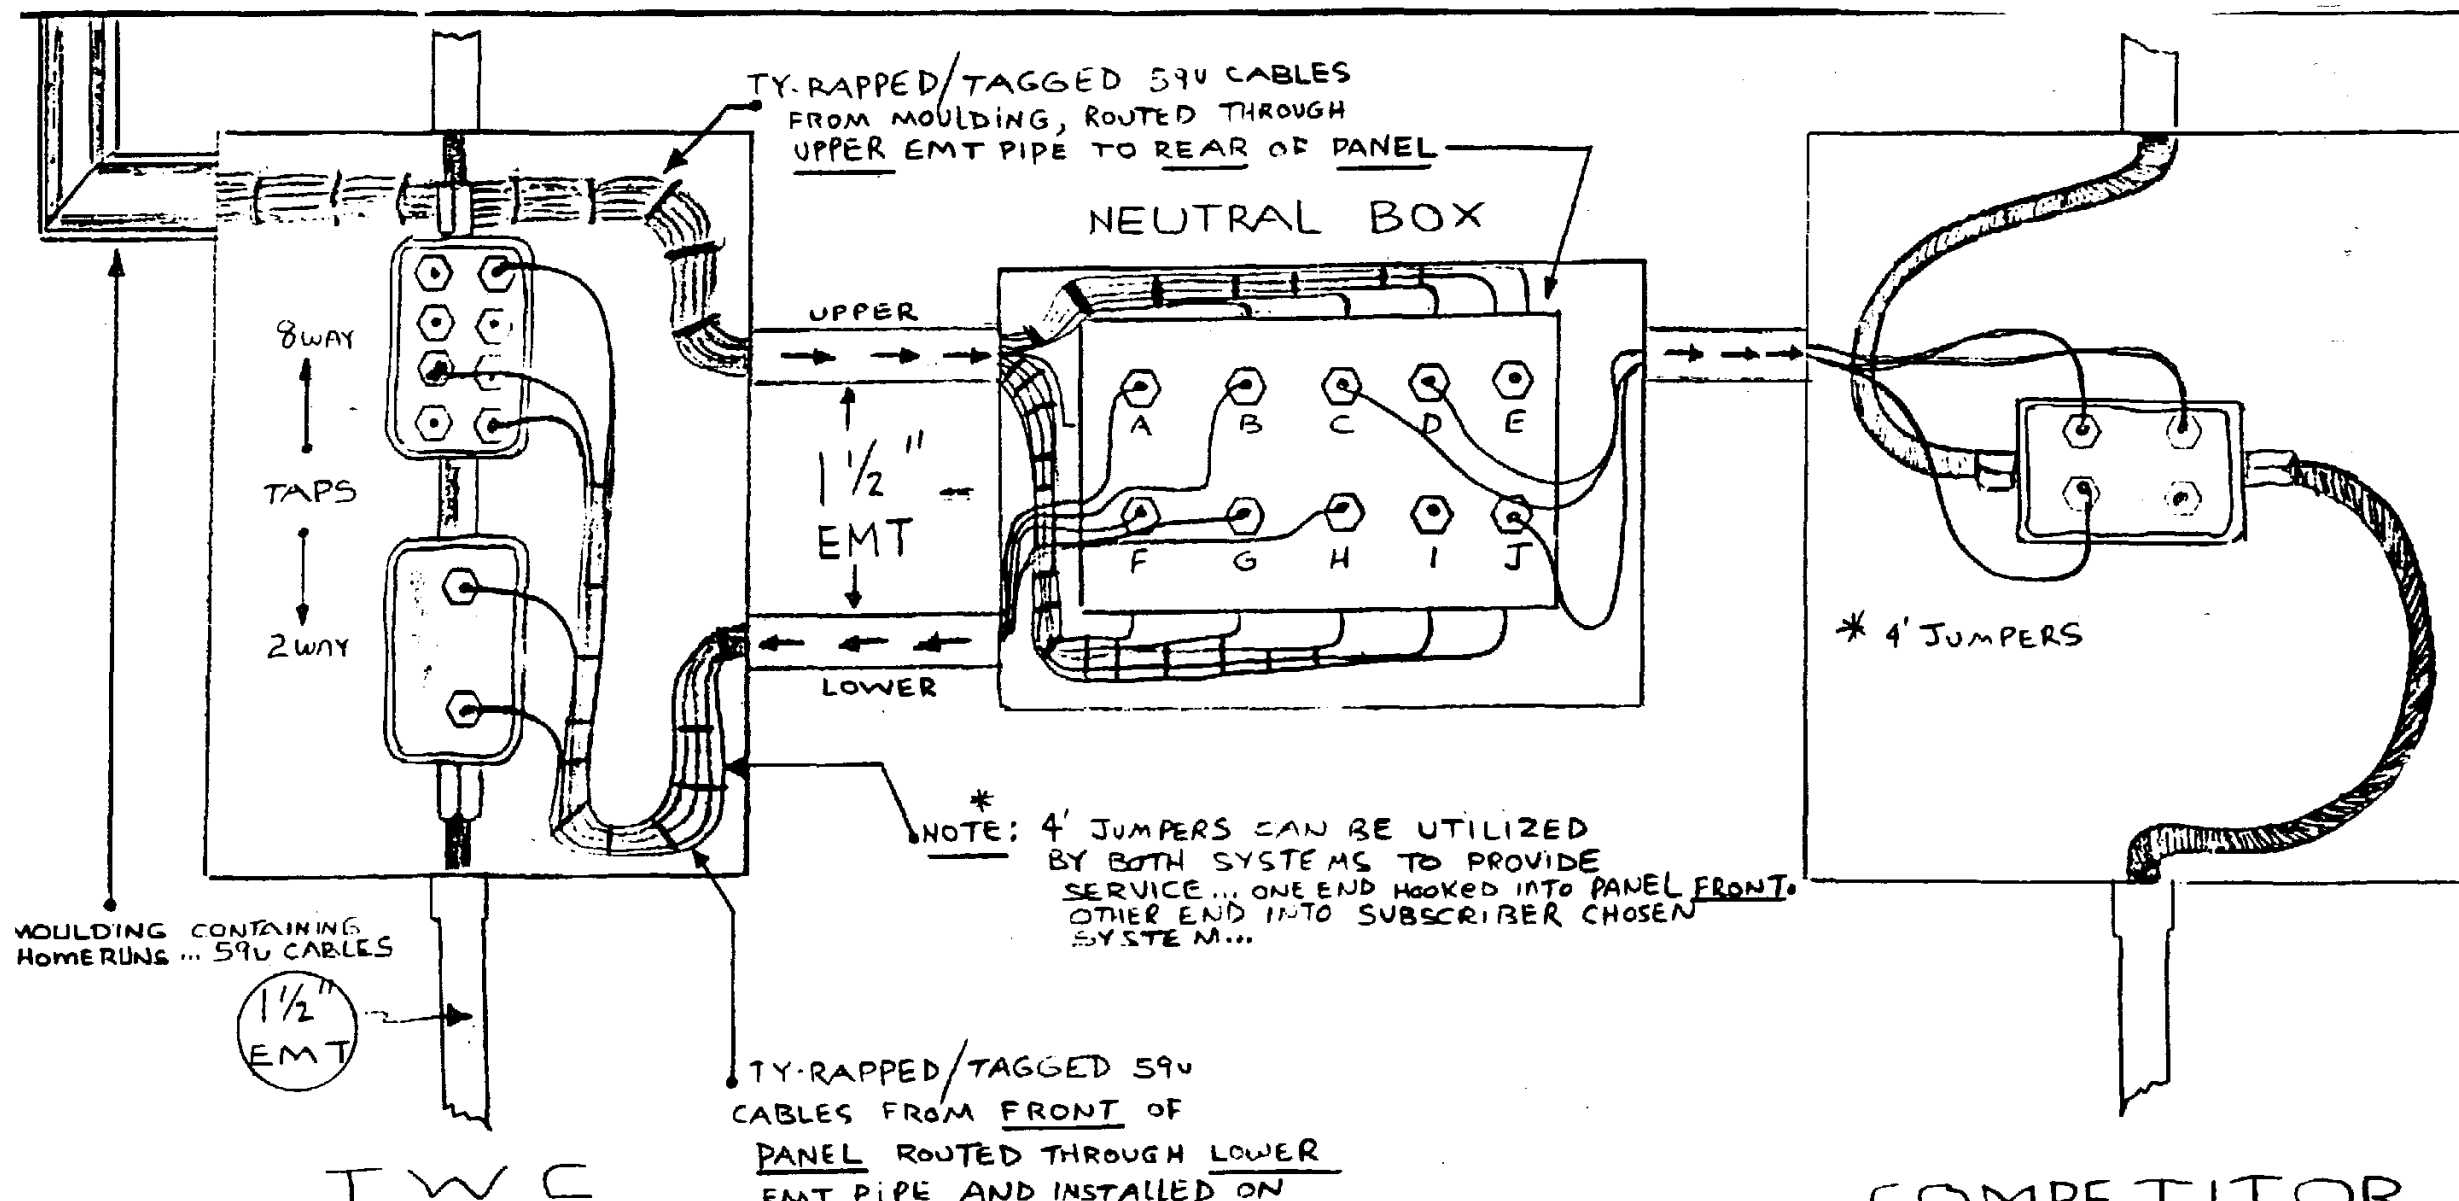 TY-RAPPED/TAGGED 59U CABLES
FROM MOULDING, ROUTED THROUGH
UPPER EMT PIPE TO REAR OF PANEL
NEUTRAL BOX
UPPER
8WAY
TAPS
2WAY
1 1/2"
EMT
LOWER
A B C D E
F G H I J
* 4' JUMPERS
*
NOTE: 4' JUMPERS CAN BE UTILIZED
BY BOTH SYSTEMS TO PROVIDE
SERVICE... ONE END HOOKED INTO PANEL FRONT.
OTHER END INTO SUBSCRIBER CHOSEN
SYSTEM...
MOULDING CONTAINING
HOMERUNS ... 59U CABLES
1 1/2"
EMT
TY-RAPPED/TAGGED 59U
CABLES FROM FRONT OF
PANEL ROUTED THROUGH LOWER
EMT PIPE AND INSTALLED ON
TWC
COMPETITOR